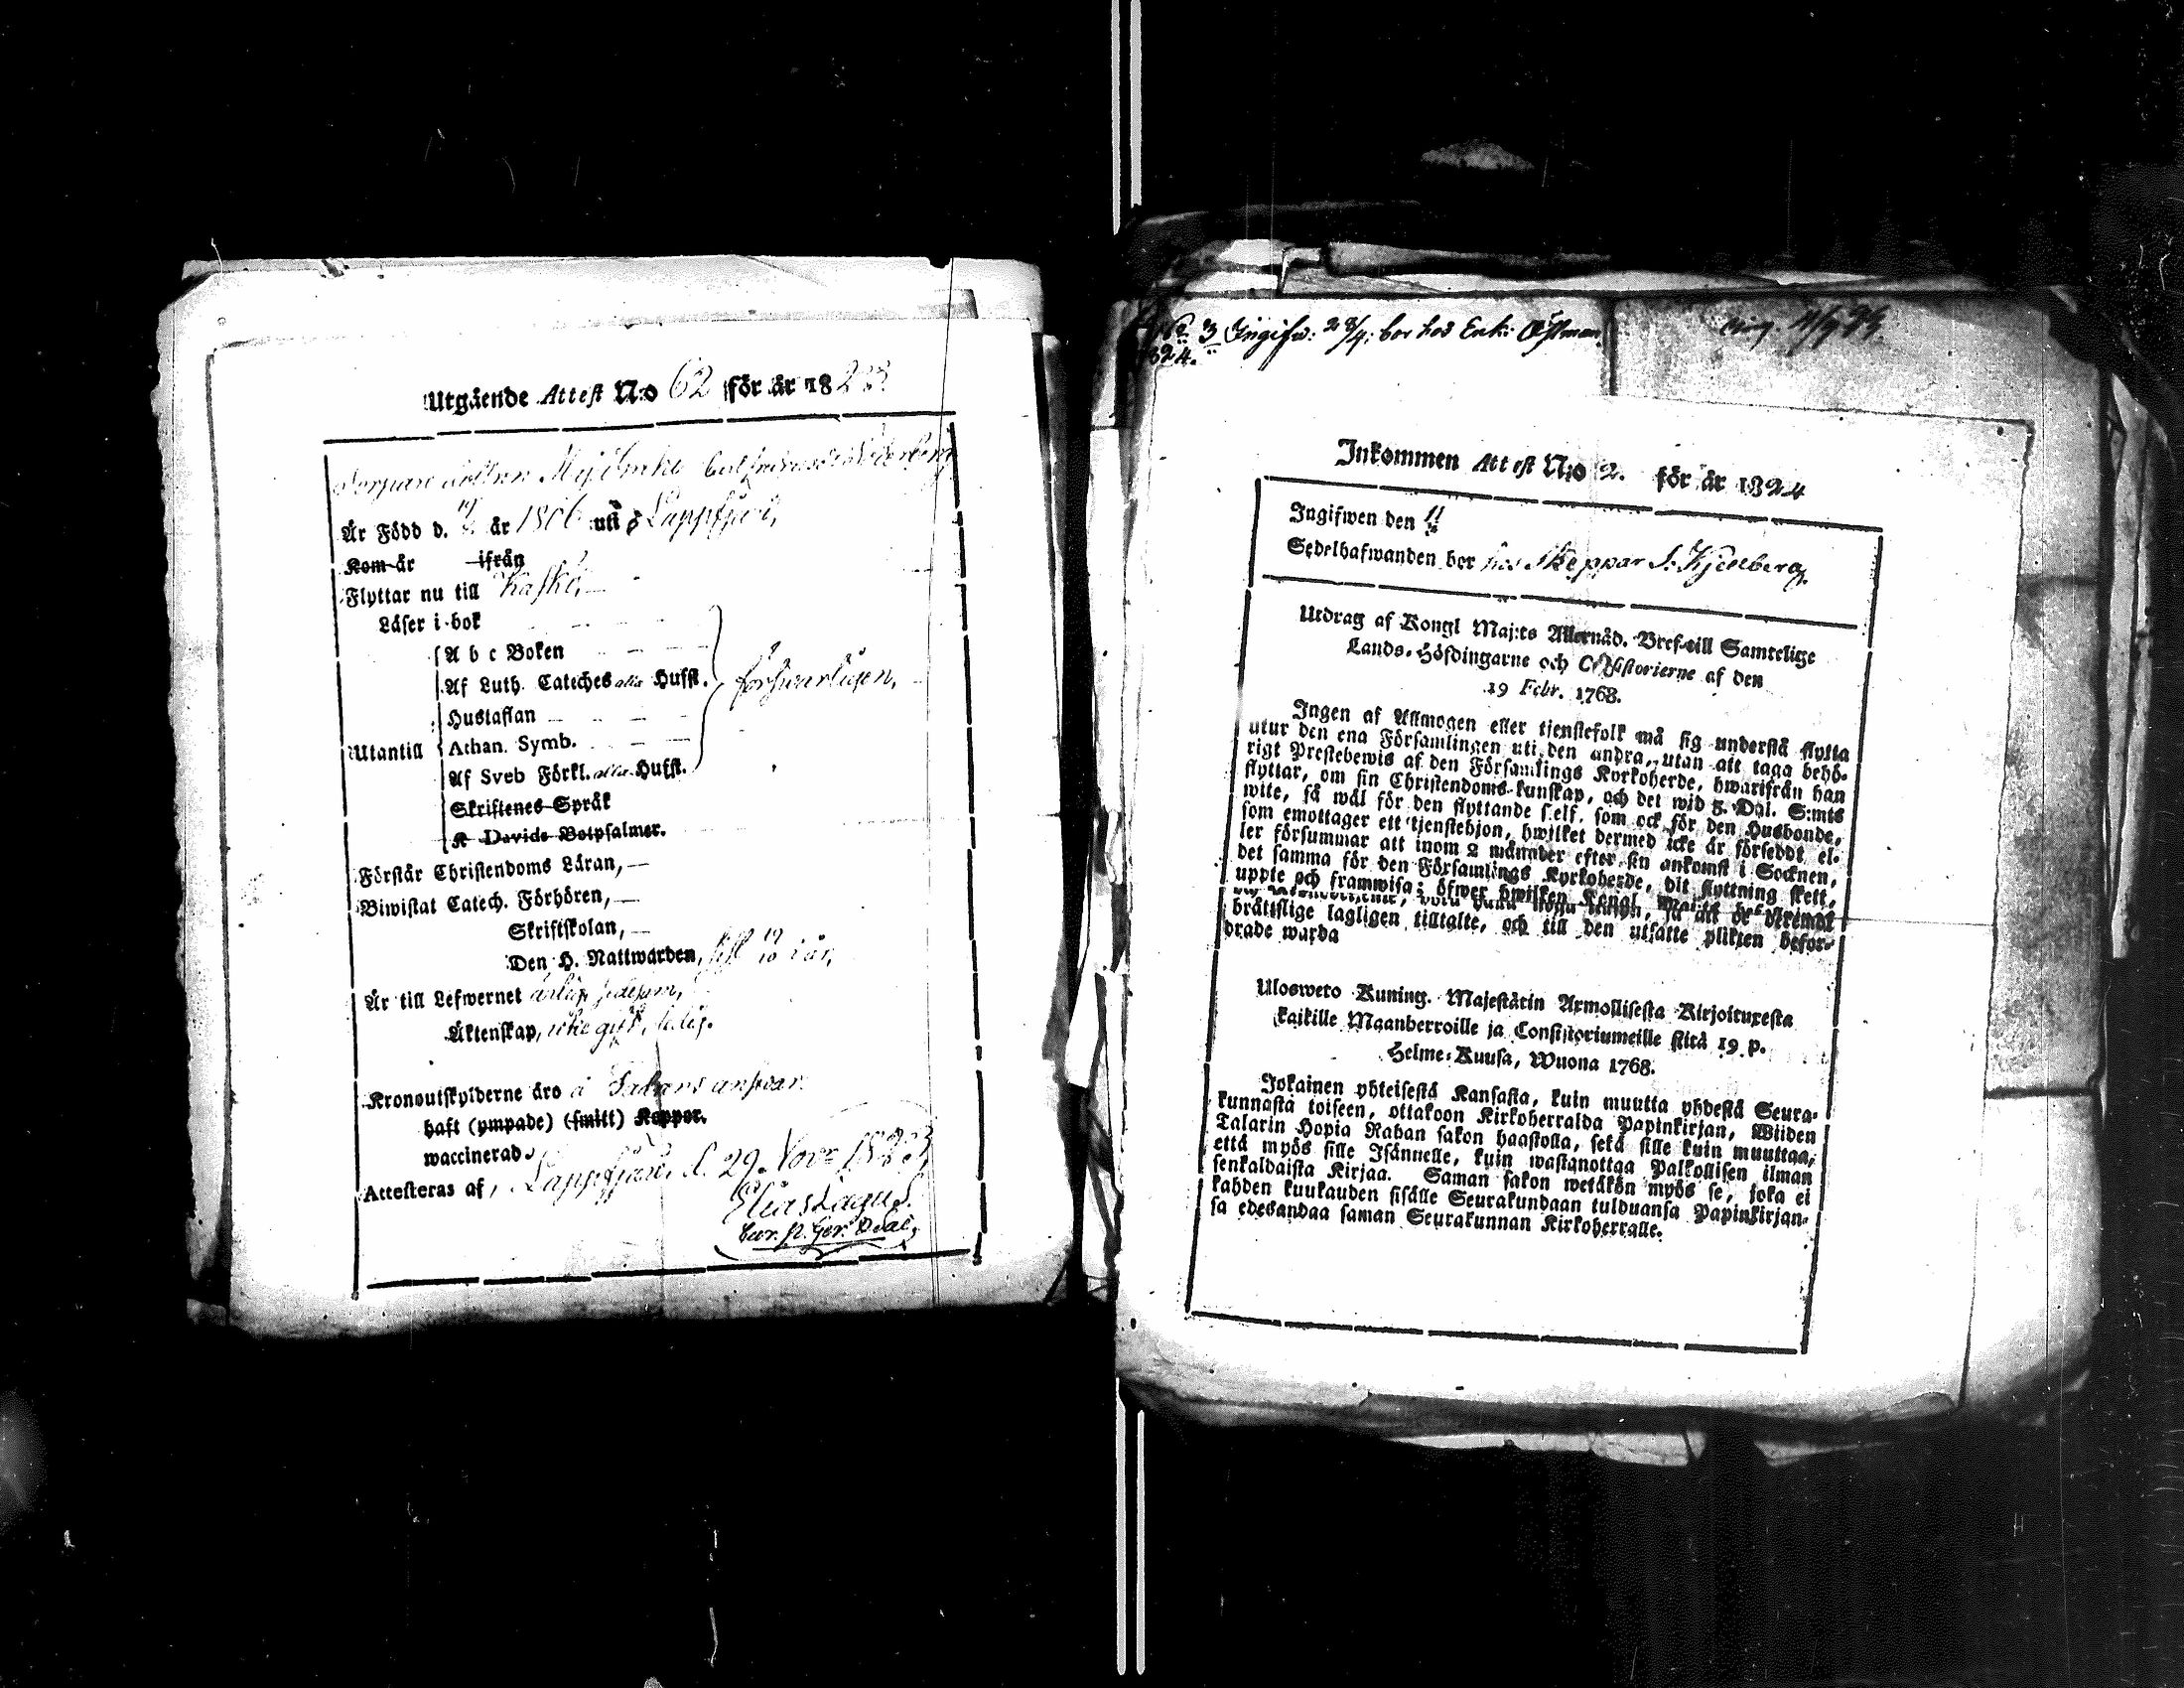 Utgående Attest N:o 62 för år 1823.
Är Född d. 19 år 1806 uti Lappfjärd,
Kom år ifrån
Flyttar nu till Kaskö,
Läser i bok
A b c Boken
Af Luth. Cateches alla Hufst. försvarligen,
Hustaflan
Utantill Athan. Symb.
Af Sveb Förkl. alla Hufst.
Skriftenes Språk
K Davids Botpsalmer.
Förstår Christendoms Läran,
Biwistat Catech. Förhören,
Skriftskolan,
Den H. Nattwarden, sist 19/10 i år,
Är till Lefwernet ärlig, sedesam,
Äktenskap, icke gift, ledig.
Kronoutskylderne äro å Fadrens ansvar.
haft (ympade) (smitt) Koppor.
waccinerad
Attesteras af, Lappfjärd, d. 29 Nov. 1823
Elias Lagus.
3 Ingifw: 28/4; bor hos Enk: Östman.
1824.
Inkommen Attest N:o 2. för år 1824
Ingifwen den 11
Sedelhafwanden bor hos Skeppar S. Kjellberg.
Utdrag af Kongl Maj:ts Allernåd. Bref till Samtelige
Lands-Höfdingarne och Consistorierne af den
19 Febr. 1768.
Ingen af Allmogen eller tjenstefolk må sig understå flytta
utur den ena Församlingen uti den andra, utan att taga behö-
rigt Prestebewis af den Församlings Kyrkoherde, hwarifrån han
flyttar, om sin Christendoms-kunskap, och det wid 5 Dal. S:mts
wite, så wäl för den flyttande self, som ock för den Husbonde,
som emottager ett tjenstehjon, hwilket dermed icke är försedt, el-
ler försummar att inom 2 månader efter sin ankomst i Socknen,
det samma för den Församlings Kyrkoherde, dit flyttning skett,
uppte och framwisa; öfwer hwilken Kongl. Maj:ts
brätslige lagligen tilltalte, och till den utsatte plikten befor-
drade warda
Ulosweto Kuning. Majestätin Armollisesta Kirjoituxesta
kaikille Maanherroille ja Consistoriumeille siitä 19 p.
Helme-Kuusa, Wuona 1768.
Jokainen yhteisestä Kansasta, kuin muutta yhdestä Seura-
kunnasta toiseen, ottakoon Kirkoherralda Papinkirjan, Wiiden
Talarin Hopia Rahan sakon haastolla, sekä sille kuin muuttaa,
että myös sille Isännelle, kuin wastanottaa Palkollisen ilman
senkaldaista Kirjaa. Saman sakon wetäkön myös se, joka ei
kahden kuukauden sisälle Seurakundaan tulduansa Papinkirjan-
sa edesandaa saman Seurakunnan Kirkoherralle.